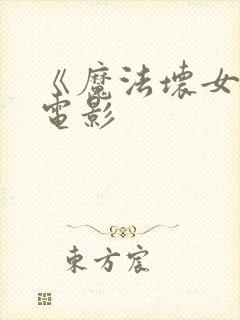 《魔法壞女
電影
東方宸